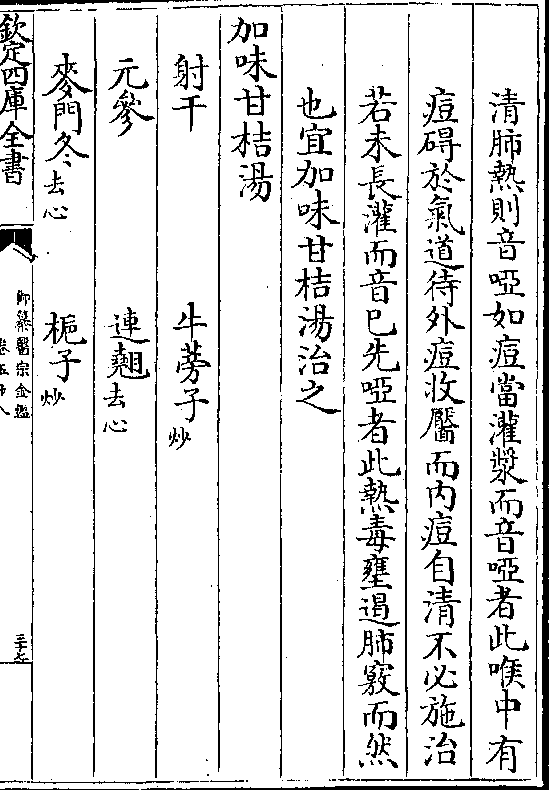 清肺熱則音啞如痘當灌漿而音啞者此喉中有
痘碍於氣道待外痘收靨而内痘自清不必施治
若未長灌而音已先啞者此熱毒壅遏肺竅而然
也宜加味甘桔湯治之
加味甘桔湯
射干 牛蒡子炒
元參 連翹去心
麥門冬去心 梔子炒
欽定四庫全書 御纂醫宗金鑑 卷五十八 三十七